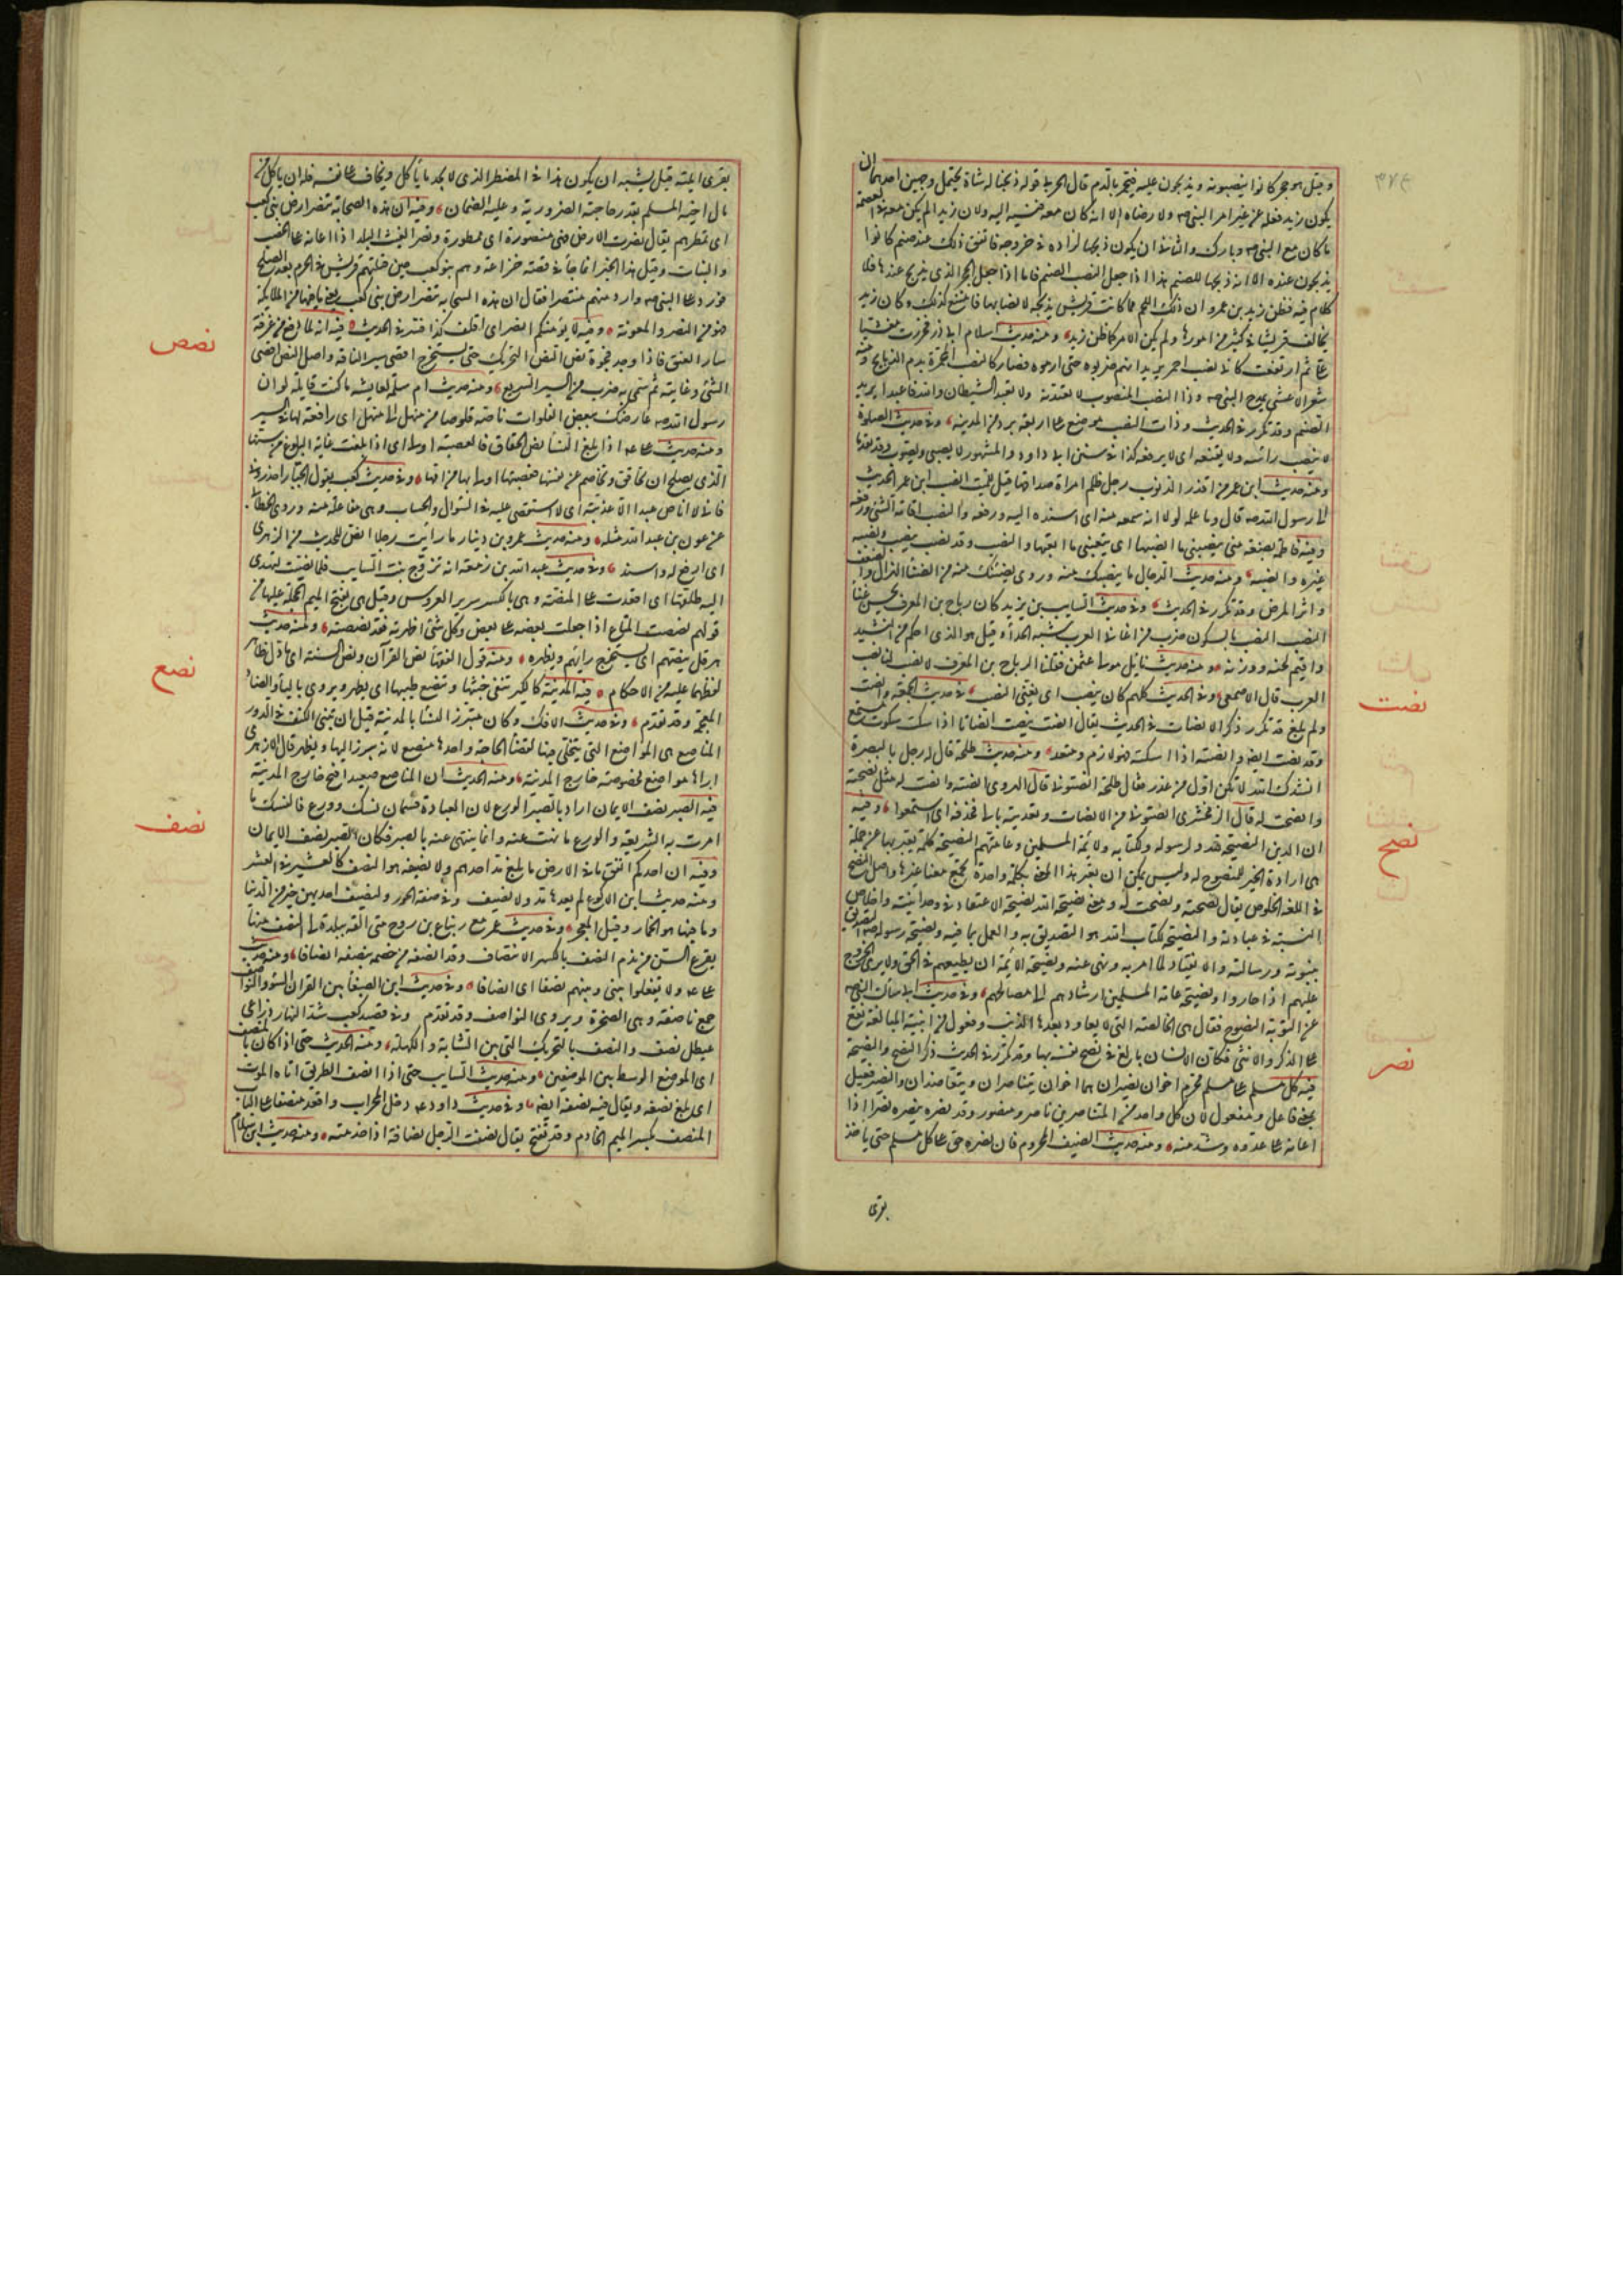 وقيل هو حجر كانوا ينصبونه ويذبحون عليه فيحمر بالدم قال الحربي قوله ذبحنا له شاة يحتمل وجهين احدهما ان
يكون زيد فعله عن غير امر النبي ولا رضاه الا انه كان معه فنسب اليه ولان زيدا لم يكن معه من العصمة
ما كان مع النبي والثاني ان يكون ذبحها لزاده في خروجه فاتفق ذلك عند صنم كانوا
يذبحون عنده لا انه ذبحها للصنم هذا اذا جعل النصب الصنم فاما اذا جعل الحجر الذي يذبح عنده فلا
كلام فيه فظن زيد بن عمرو ان ذلك اللحم مما كانت قريش تذبحه لانصابها فامتنع لذلك وكان زيد
يخالف قريشا في كثير من امورها ولم يكن الامر كما ظن زيد ومنه حديث اسلام ابي ذر فخررت مغشيا
علي ثم ارتفعت كاني نصب احمر يريد انهم ضربوه حتى ادموه فصار كالنصب المحمر بدم الذبائح ومنه
شعر الاعشى يمدح النبي وذا النصب المنصوب لا تعبدنه ولا تعبد الشيطان والله فاعبدا يريد
الصنم وقد تكرر في الحديث وذات النصب موضع على اربعة برد من المدينة وفي حديث الصلوة
لا ينصب راسه ولا يقنعه اي لا يرفعه كذا في سنن ابي داود والمشهور لا يصبي ويصوب وقد تقدما
ومنه حديث ابن عمر من اقذر الذنوب رجل ظلم امراة صداقها قيل لليث انصب ابن عمر الحديث
الى رسول الله قال وما علمه لولا انه سمعه منه اي اسنده اليه ورفعه والنصب اقامة الشيء ورفعه
وفيه فاطمة بضعة مني ينصبني ما انصبها اي يتعبني ما اتعبها والنصب التعب وقد نصب ينصب ونصبه
غيره وانصبه
واثر المرض وقد تكرر في الحديث وفي حديث السايب بن يزيد كان رباح بن المغترف يحسن غناء
النصب النصب بالسكون ضرب من اغاني العرب شبه الحداء وقيل هو الذي احكم من النشيد
واقيم لحنه ووزنه ومنه حديث نايل مولى عثمن فقلنا لرباح بن المغترف لو نصبت لنا نصب
العرب قال الاصمعي وفي الحديث كلهم كان ينصب اي يغني النصب في حديث الجمعة وانصت
ولم يلغ قد تكرر ذكر الانصات في الحديث يقال انصت ينصت انصاتا اذا سكت سكوت مستمع
وقد نصت ايضا وانصته اذا اسكته فهو لازم ومتعد ومنه حديث طلحة قال له رجل بالبصرة
انشدك الله لا تكن اول من غدر فقال طلحة انصتوني قال الهروي انصته وانصت له مثل نصحته
وانصحت له قال الزمخشري انصتوني من الانصات وتعديته بالى فحذفه اي استمعوا وفيه
ان الدين النصيحة لله ولرسوله ولكتابه ولائمة المسلمين وعامتهم النصيحة كلمة يعبر بها عن جملة
هي ارادة الخير للمنصوح له وليس يمكن ان يعبر هذا المعنى بكلمة واحدة تجمع معناه غيرها واصل النصح
في اللغة الخلوص يقال نصحته ونصحت له ومعنى نصيحة الله نصيحة الاعتقاد في وحدانيته واخلاص
النية في عبادته والنصيحة لكتاب الله هو التصديق به والعمل بما فيه ونصيحة رسوله التصديق
بنبوته ورسالته والانقياد لما امر به ونهى عنه ونصيحة الائمة ان يطيعهم في الحق ولا يرى الخروج
عليهم اذا جاروا ونصيحة عامة المسلمين ارشادهم الى مصالحهم وفي حديث ابي سالت النبي
عن التوبة النصوح فقال هي الخالصة التي لا يعاود بعدها الذنب وفعول من ابنية المبالغة يقع
على الذكر والانثى فكان الانسان بالغ في نصح نفسه بها وقد تكرر في الحديث ذكر النصح والنصيحة
فيه كل مسلم على مسلم محرم اخوان نصيران هما اخوان يتناصران ويتعاضدان والنصير فعيل
بمعنى فاعل ومفعول لان كل واحد من المتناصرين ناصر ومنصور وقد نصره ينصره نصرا اذا
اعانه على عدوه وشد منه ومنه حديث الضيف المحروم فان نصره حق على كل مسلم حتى ياخذ
بقرى
نصت
نصح
نصر
بقرى ليلته قيل يشبه ان يكون هذا في المضطر الذي لا يجد ما ياكل ويخاف على نفسه فله ان ياكل من
مال اخيه المسلم بقدر حاجته الضرورية وعليه الضمان وفيه ان هذه السحابة تنصر ارض بني كعب
اي تمطرهم يقال نصرت الارض فهي منصورة اي ممطورة ونصر الغيث البلد اذا اعانه على الخصب
والنبات وقيل هذا الخبر انما جاء في قصة خزاعة وهم بنو كعب حين قتلتهم قريش في الحرم بعد الصلح
فورد على النبي وارد منهم مستنصرا فقال ان هذه السحابة تنصر ارض بني كعب يعني بما فيها من الملائكة
فهو من النصر والمعونة وفيه لا يؤمنكم انصر اي اقلف كذا فسر في الحديث فيه انه لما دفع من عرفة
سار العنق فاذا وجد فجوة نص النص التحريك حتى يستخرج اقصى سير الناقة واصل النص اقصى
الشيء وغايته ثم سمي به ضرب من السير السريع ومنه حديث ام سلمة لعايشة ما كنت قايلة لو ان
رسول الله عارضك ببعض الفلوات ناصة قلوصا من منهل الى منهل اي رافعة لها في السير
ومنه حديث علي اذا بلغ النساء نص الحقاق فالعصبة اولى اي اذا بلغت غاية البلوغ من سنها
الذي يصلح ان تحاقق وتخاصم عن نفسها فعصبتها اولى بها من امها وفي حديث كعب يقول الجبار احذروني
فاني لا اناص عبدا الا عذبته اي لا استقصي عليه في السؤال والحساب وهي مفاعلة منه وروى الخطابي
عن عون بن عبد الله مثله ومنه حديث عمرو بن دينار ما رايت رجلا انص للحديث من الزهري
اي ارفع له واسند وفي حديث عبد الله بن زمعة انه تزوج بنت السايب فلما نصت لتهدى
اليه طلقها اي اقعدت على المنصة وهي بالكسر سرير العروس وقيل هي بفتح الميم الحجلة عليها من
قولهم نصصت المتاع اذا جعلت بعضه على بعض وكل شيء اظهرته فقد نصصته ومنه حديث
هرقل ينصهم اي يستخرج رايهم ويظهره ومنه قول الفقهاء نص القرآن ونص السنة اي ما دل ظاهر
لفظهما عليه من الاحكام فيه المدينة كالكير تنفي خبثها وتنصع طيبها اي يظهر ويروى بالباء والضاد
المعجمة وقد تقدم وفي حديث الافك وكان متبرز النساء بالمدينة قبل ان تبنى الكنف في الدور
المناصع هي المواضع التي يتخلى فيها لقضاء الحاجة واحدها منصع لانه يبرز اليها ويظهر قال الازهري
اراها مواضع مخصوصة خارج المدينة ومنه الحديث ان المناصع صعيد افيح خارج المدينة
فيه الصبر نصف الايمان اراد بالصبر الورع لان العبادة قسمان نسك وورع فالنسك ما
امرت به الشريعة والورع ما نهت عنه وانما ينتهى عنه بالصبر فكان الصبر نصف الايمان
وفيه ان احدكم انفق ما في الارض ما بلغ مد احدهم ولا نصيفه هو النصف كالعشير في العشر
ومنه حديث ابن الاكوع لم يغدها مد ولا نصيف وفي صفة الحور ولنصيف احديهن خير من الدنيا
وما فيها هو الخمار وقيل المعجر وفي حديث عمر مع زنباع بن روح متى القه ببلدة لي النصف منها
يقرع السن من ندم النصف بالكسر الانتصاف وقد انصفه من خصمه ينصفه انصافا ومنه حديث
علي ولا جعلوا بيني وبينهم نصفا اي انصافا وفي حديث ابن الصبغاء بين القران السوء والنواصف
جمع ناصفة وهي الصخرة ويروى التواصف وقد تقدم وفي قصيد كعب شد النهار ذراعي
عيطل نصف والنصف بالتحريك التي بين الشابة والكهلة ومنه الحديث حتى اذا كان بالمنصف
اي الموضع الوسط بين الموضعين ومنه حديث التايب حتى اذا انصف الطريق اتاه الموت
اي بلغ نصفه ويقال فيه نصفه ايضا وفي حديث داود دخل المحراب واقعد منصفا على الباب
المنصف بكسر الميم الخادم وقد تفتح يقال نصفت الرجل نصافة اذا خدمته ومنه حديث ابن سلام
نصص
نصع
نصف